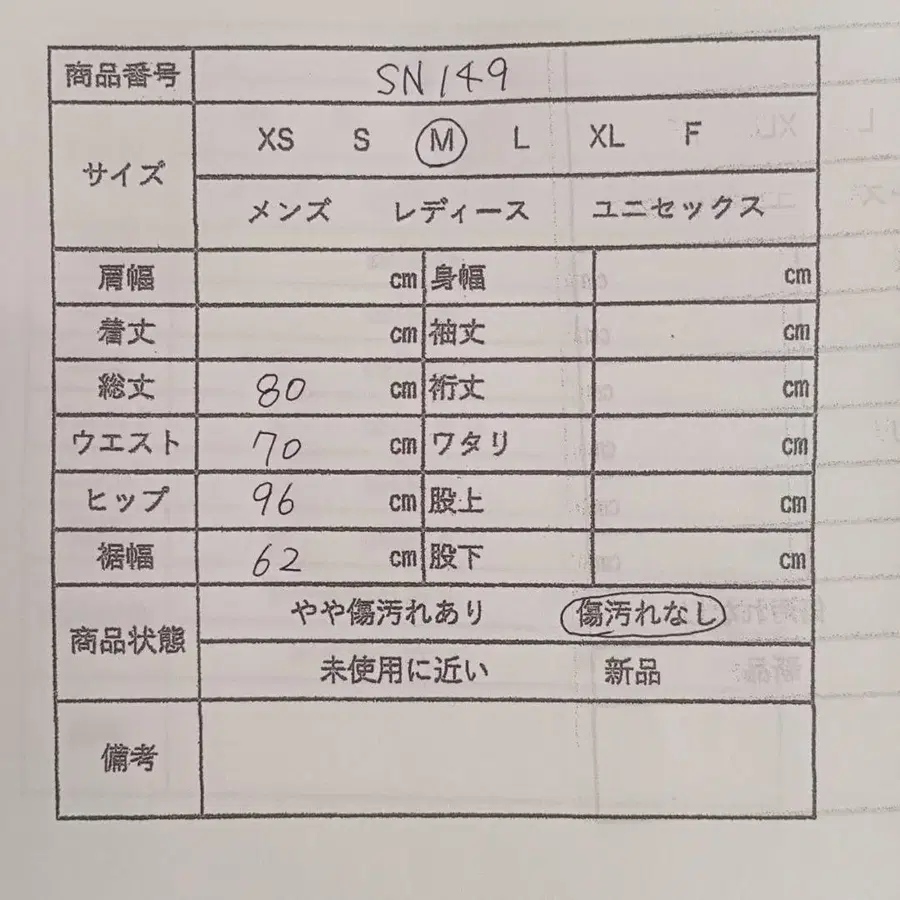 商品番号 SN149
サイズ XS S M L XL F
メンズ レディース ユニセックス
肩幅 cm 身幅 cm
着丈 cm 袖丈 cm
総丈 80 cm 裄丈 cm
ウエスト 70 cm ワタリ cm
ヒップ 96 cm 股上 cm
裾幅 62 cm 股下 cm
商品状態 やや傷汚れあり 傷汚れなし
未使用に近い 新品
備考